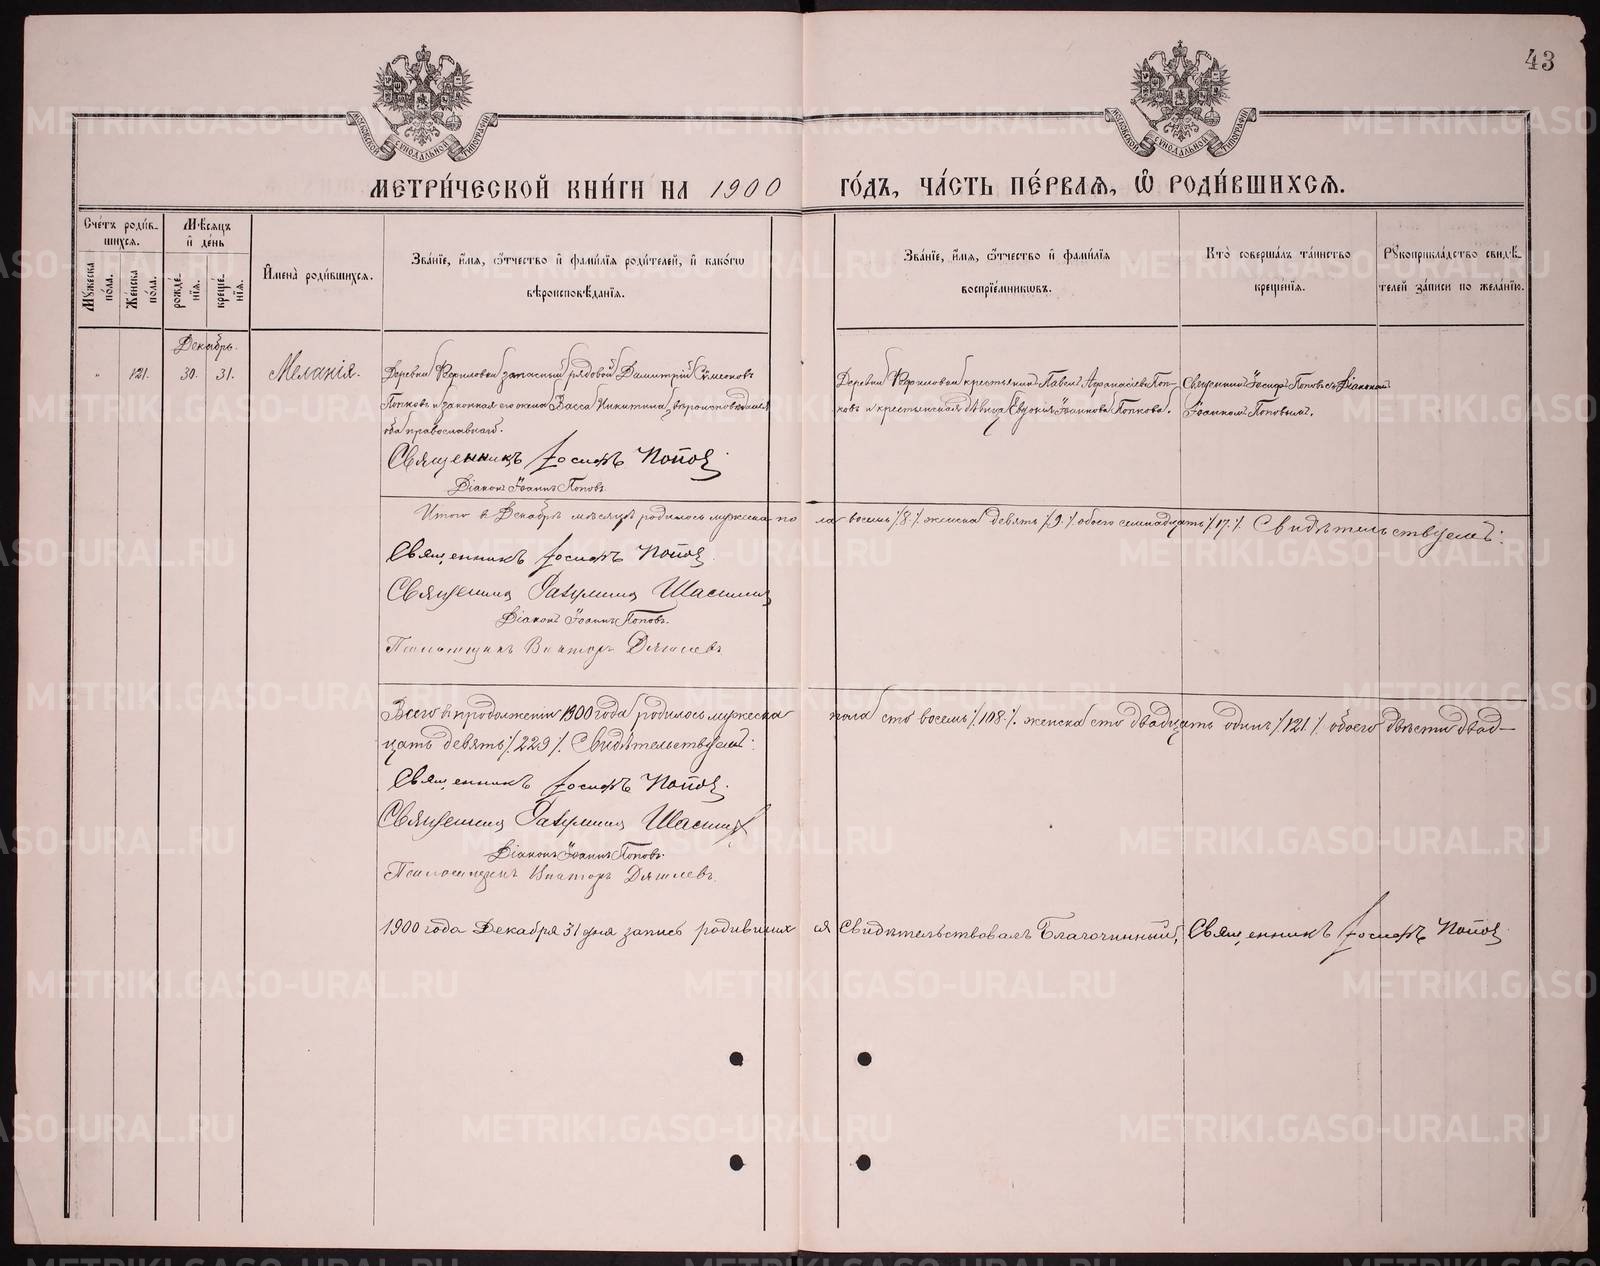 43
МЕТРИ́ЧЕСКОЙ КНИ́ГИ НА 1900 ГО́ДЪ, ЧА́СТЬ ПЕ́РВАѦ, Ѡ҆ РОДИ́ВШИХСѦ.
Сче́тъ роди́в-
шихсѧ.
Мꙋ́жеска по́ла.
Же́нска по́ла.
Мѣ́сѧцъ
и҆ де́нь
рожде́-
нїѧ.
креще́-
нїѧ.
И҆мена̀ роди́вшихсѧ.
Зва́нїе, и҆́мѧ, ѻ҆́тчество и҆ фами́лїѧ роди́телей, и҆ како́гѡ
вѣроисповѣ́данїѧ.
Зва́нїе, и҆́мѧ, ѻ҆́тчество и҆ фами́лїѧ
воспрїе́мникѡвъ.
Кто̀ соверша́лъ та́инство
креще́нїѧ.
Рꙋкоприкла́дство свидѣ́-
телей за́писи по жела́нїю.
Декабрь.
" 121. 30. 31. Меланія.
Деревни запасный рядовой Димитрій Симеоновъ
Попковъ и законная его жена Васса Никитина, вѣроисповѣданія
оба православнаго.
Священникъ Іосифъ Поповъ
Діаконъ Іоаннъ Поповъ.
Деревни крестьянинъ Павелъ Афанасіевъ Поп-
ковъ и крестьянская дѣвица Евдокія Іоаннова Попкова.
Священникъ Іосифъ Поповъ съ Діакономъ
Іоанномъ Поповымъ.
Итого в Декабрѣ мѣсяцѣ родилось мужеска пола восемь /8./ женска девять /9./ обоего семнадцать /17./ Свидѣтельствуемъ:
Священникъ Іосифъ Поповъ
Священникъ
Діаконъ Іоаннъ Поповъ.
Псаломщикъ Викторъ
Всего в продолженіи 1900 года родилось мужеска пола сто восемь /108./ женска сто двадцать одинъ /121./ обоего двѣсти двад-
цать девять /229/. Свидѣтельствуемъ:
Священникъ Іосифъ Поповъ.
Священникъ
Діаконъ Іоаннъ Поповъ.
Псаломщикъ Викторъ
1900 года Декабря 31 дня запись родившихся Свидѣтельствовалъ Благочинный, Священникъ Іосифъ Поповъ
METRIKI.GASO-URAL.RU